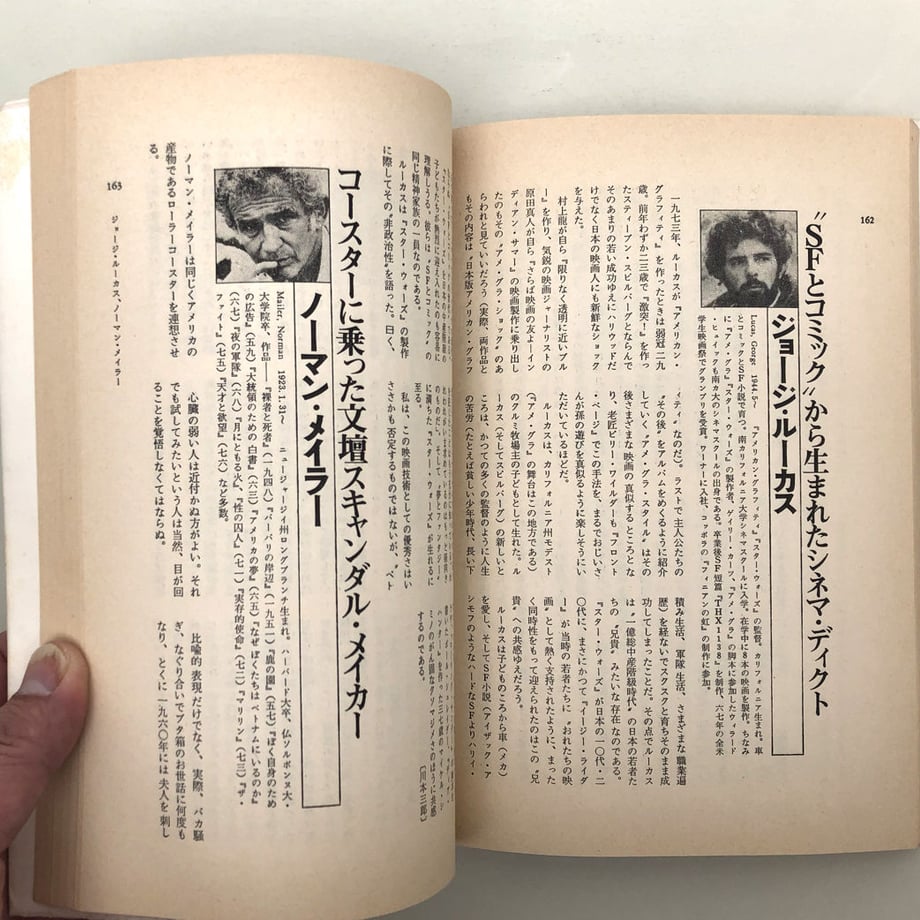 162
〝SFとコミック〟から生まれたシネマ・ディクト
ジョージ・ルーカス
Lucas, George 1944.5～ 『アメリカン・グラフィティ』『スター・ウォーズ』の監督。カリフォルニア生まれ。車
とコミックとSF小説で育つ。南カリフォルニア大学シネマスクールに入学。在学中に8本の映画を製作。ちなみ
に『アメ・グラ』『スター・ウォーズ』の製作者、ゲイリー・カーツ、『アメ・グラ』の脚本に参加したウィラード
・ヒュイックも南カ大のシネマスクールの出身である。卒業後SF短篇『THX1138』を制作、六七年の全米
学生映画祭でグランプリを受賞。ワーナーに入社、コッポラの『フィニアンの虹』の制作に参加。
一九七三年、ルーカスが『アメリカン・
グラフィティ』を作ったときは弱冠二九
歳。前年わずか二三歳で『激突！』を作っ
たスティーブン・スピルバーグとならんで
そのあまりの若い成功ゆえにハリウッドだ
けでなく日本の映画人にも新鮮なショック
を与えた。
村上龍が自ら『限りなく透明に近いブル
ー』を作り、気鋭の映画ジャーナリストの
原田真人が自ら『さらば映画の友よ―イン
ディアン・サマー』の映画製作に乗り出し
たのもその〝アメ・グラ・ショック〟のあ
らわれと見ていいだろう（実際、両作品と
もその内容は〝日本版アメリカン・グラフ
ィティ〟なのだ）。ラストで主人公たちの
〝その後〟をアルバムをめくるように紹介
していく〝アメ・グラ・スタイル〟はその
後さまざまな映画の真似するところとな
り、老匠ビリー・ワイルダーも『フロント
・ページ』でこの手法を、まるでおじいさ
んが孫の遊びを真似るように楽しそうにい
ただいているほどだ。
ルーカスは、カリフォルニア州モデスト
（『アメ・グラ』の舞台はこの地方である）
のクルミ牧場主の子どもとして生れた。ル
ーカス（そしてスピルバーグ）の新しいと
ころは、かつての多くの監督のように人生
の苦労（たとえば貧しい少年時代、長い下
積み生活、軍隊生活、さまざまな職業遍
歴）を経ないでスクスクと育ちそのまま成
功してしまったことだ。その点でルーカス
は〝一億総中産階級時代〟の日本の若者た
ちの〝兄貴〟みたいな存在なのである。
『スター・ウォーズ』が日本の一〇代・二
〇代に、まさにかつて『イージー・ライダ
ー』が当時の若者たちに〝おれたちの映
画〟として熱く支持されたように、まった
く同時性をもって迎えられたのはこの〝兄
貴〟への共感ゆえだろう。
ルーカスは子どものころから車（メカ）
を愛し、そしてSF小説（アイザック・ア
シモフのようなハードなSFよりハリイ・
子どもたちが熱烈に迎え入れたのも容易に
理解しうる。彼らは〝SFとコミック〟の
同じ精神家族の一員なのである。
ルーカスは『スター・ウォーズ』の製作
に際してその〝非政治性〟を語った。曰く、
に満ちた『スター・ウォーズ』が生れるに
至る。
私は、この映画技術としての優秀さはい
ささかも否定するものではないが、〝ベト
するものである。
〔川本三郎〕
コースターに乗った文壇スキャンダル・メイカー
ノーマン・メイラー
Mailer, Norman 1923.1.31～ ニュージャージイ州ロングブランチ生まれ。ハーバード大卒、仏ソルボンヌ大・
大学院卒、作品――『裸者と死者』（一九四八）『バーバリの岸辺』（一九五一）『鹿の園』（五七）『ぼく自身のため
の広告』（五九）『大統領のための白書』（六三）『アメリカの夢』（六五）『なぜぼくたちはベトナムにいるのか』
（六七）『夜の軍隊』（六八）『月にともる火』、『性の囚人』（七一）『実存的使命』（七二）『マリリン』（七三）『ザ・
ファイト』（七五）『天才と欲望』（七六）など多数。
ノーマン・メイラーは同じくアメリカの
産物であるローラーコースターを連想させ
る。
心臓の弱い人は近付かぬ方がよい。それ
でも試してみたいという人は当然、目が回
ることを覚悟しなくてはならぬ。
比喩的表現だけでなく、実際、バカ騒
ぎ、なぐり合いでブタ箱のお世話に何度も
なり、とくに一九六〇年には夫人を刺し
163
ジョージ・ルーカス、ノーマン・メイラー